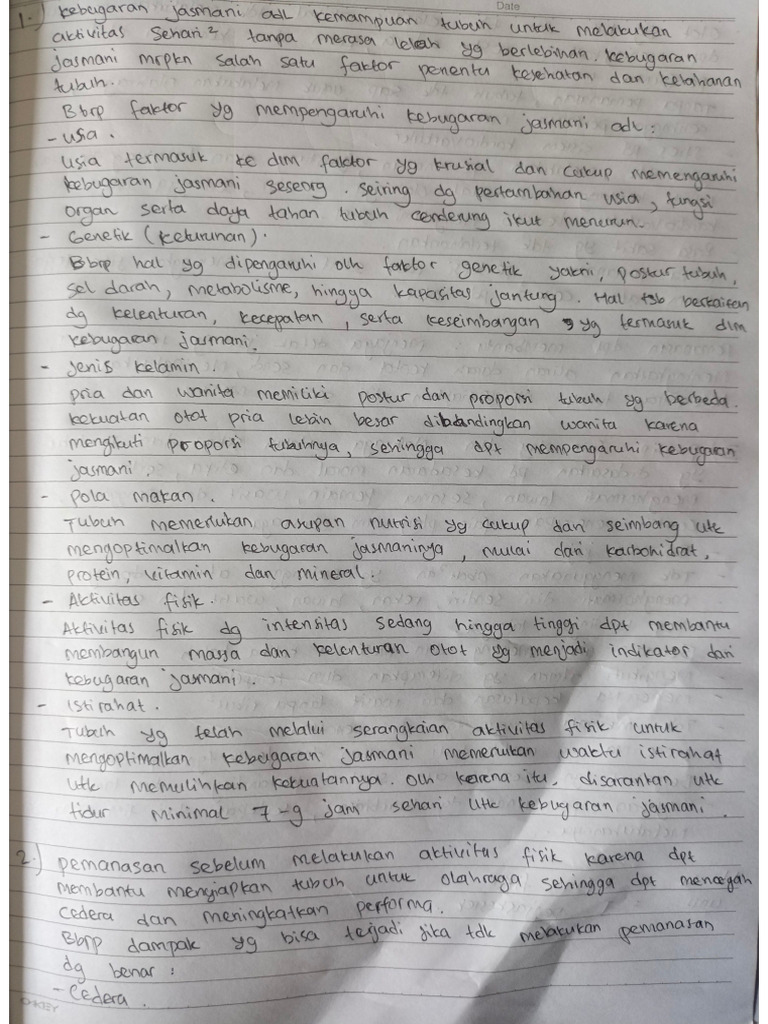 Date
1.) Kebugaran jasmani adl kemampuan tubuh untuk melakukan
aktivitas sehari² tanpa merasa lelah yg berlebihan. kebugaran
jasmani mrpkn salah satu faktor penentu kesehatan dan ketahanan
tubuh.
Bbrp faktor yg mempengaruhi kebugaran jasmani adl :
- usia .
usia termasuk ke dlm faktor yg krusial dan cukup memengaruhi
kebugaran jasmani seseorg . seiring dg pertambahan usia , fungsi
organ serta daya tahan tubuh cenderung ikut menurun.
- Genetik (keturunan).
Bbrp hal yg dipengaruhi olh faktor genetik yakni, postur tubuh,
sel darah, metabolisme, hingga kapasitas jantung . Hal tsb berkaitan
dg kelenturan, kecepatan , serta keseimbangan yg termasuk dlm
kebugaran jasmani.
- Jenis kelamin .
pria dan wanita memiliki postur dan proporsi tubuh yg berbeda.
kekuatan otot pria lebih besar dibandingkan wanita karena
mengikuti proporsi tubuhnya, sehingga dpt mempengaruhi kebugaran
jasmani .
- pola makan .
Tubuh memerlukan asupan nutrisi yg cukup dan seimbang utk
mengoptimalkan kebugaran jasmaninya , mulai dari karbohidrat,
protein, vitamin dan mineral.
- Aktivitas fisik.
Aktivitas fisik dg intensitas sedang hingga tinggi dpt membantu
membangun massa dan kelenturan otot yg menjadi indikator dari
kebugaran jasmani .
- Istirahat .
Tubuh yg telah melalui serangkaian aktivitas fisik untuk
mengoptimalkan kebugaran jasmani memerlukan waktu istirahat
utk memulihkan kekuatannya. olh karena itu, disarankan utk
tidur minimal 7-9 jam sehari utk kebugaran jasmani .
2.) pemanasan sebelum melakukan aktivitas fisik karena dpt
membantu menyiapkan tubuh untuk olahraga sehingga dpt mencegah
cedera dan meningkatkan performa.
Bbrp dampak yg bisa terjadi jika tdk melakukan pemanasan
dg benar :
- Cedera .
OKEY